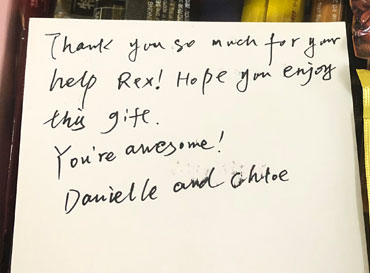 Thank you so much for your
help Rex! Hope you enjoy
this gift.
You're awesome!
Danielle and Chloe